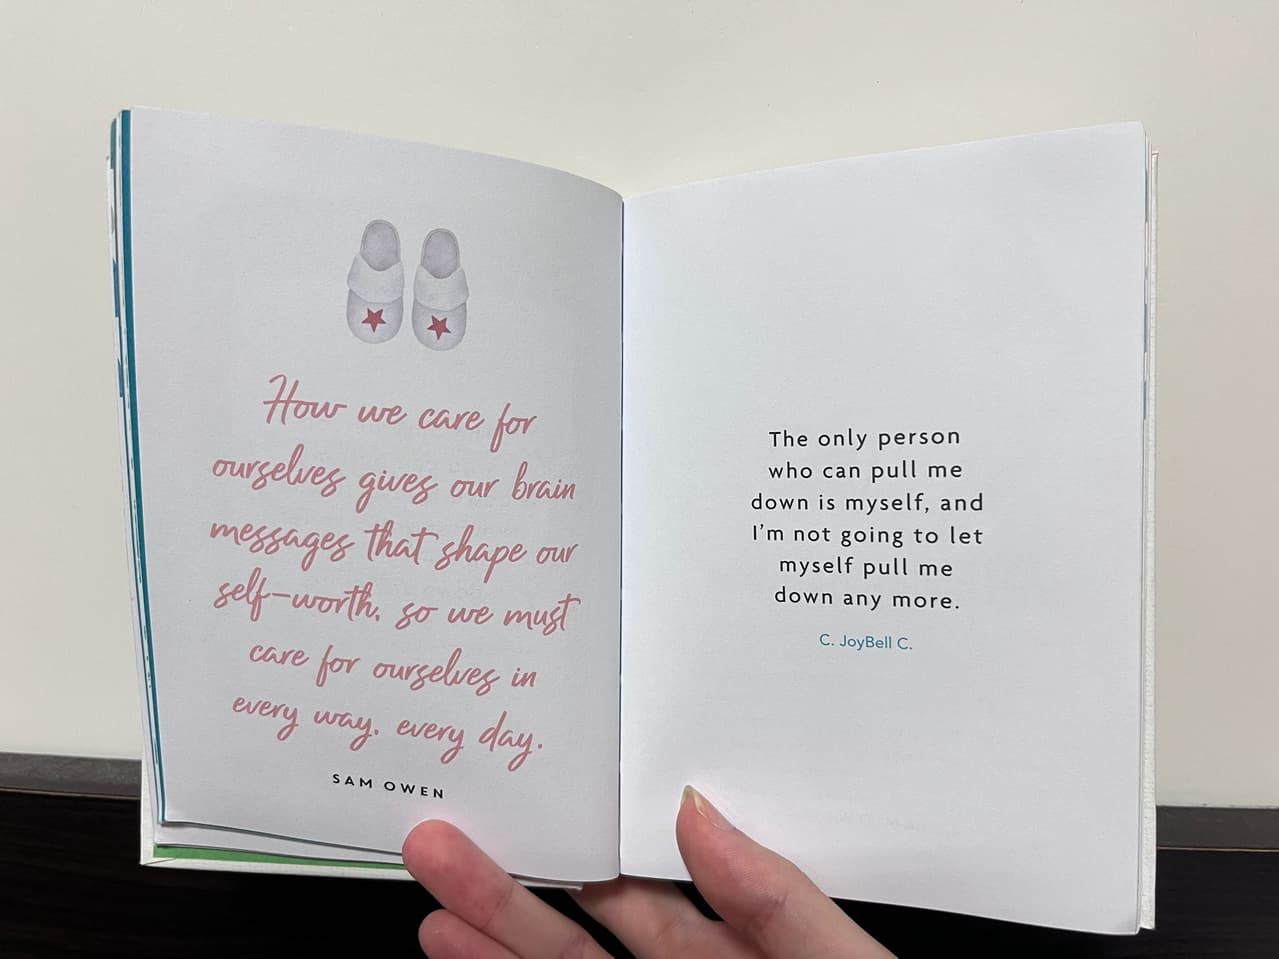 How we care for
ourselves gives our brain
messages that shape our
self-worth, so we must
care for ourselves in
every way, every day.
SAM OWEN
The only person
who can pull me
down is myself, and
I'm not going to let
myself pull me
down any more.
C. JoyBell C.